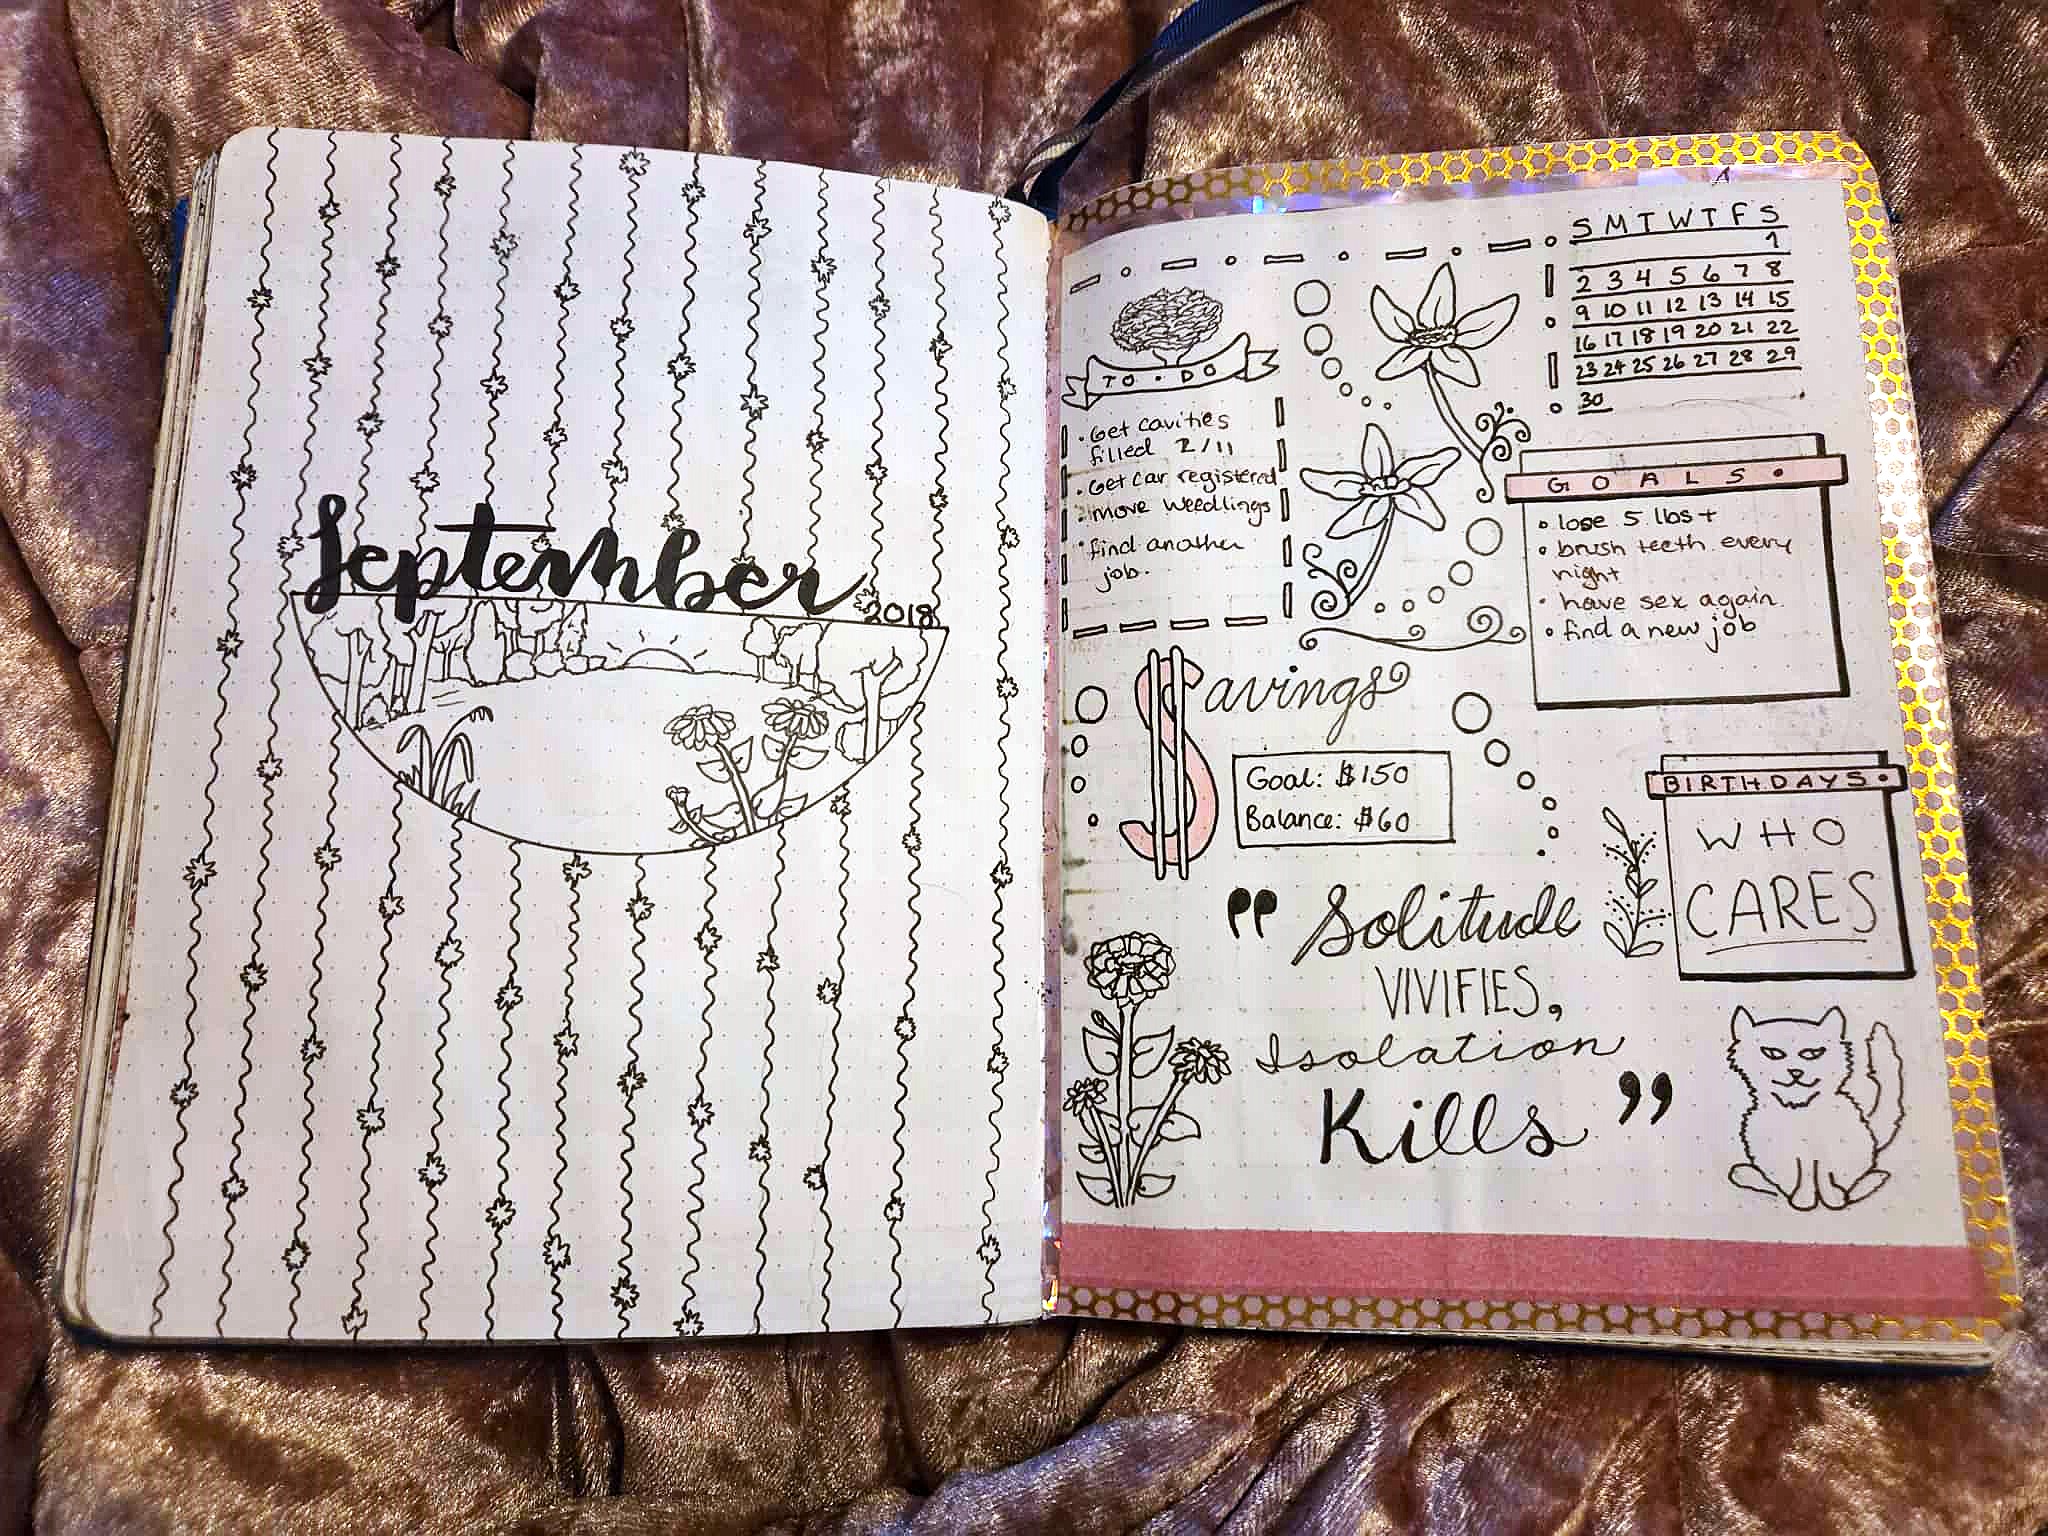 September
2018
S M T W T F S
1
2 3 4 5 6 7 8
9 10 11 12 13 14 15
16 17 18 19 20 21 22
23 24 25 26 27 28 29
30
TO • DO
• Get cavities
filled 2/11
• Get car registered
• move weedlings
• find another
job.
GOALS •
• lose 5 lbs+
• brush teeth every
night
• have sex again
• find a new job
$avings
Goal: $150
Balance: $60
BIRTHDAYS •
WHO
CARES
" Solitude
VIVIFIES,
Isolation
Kills "